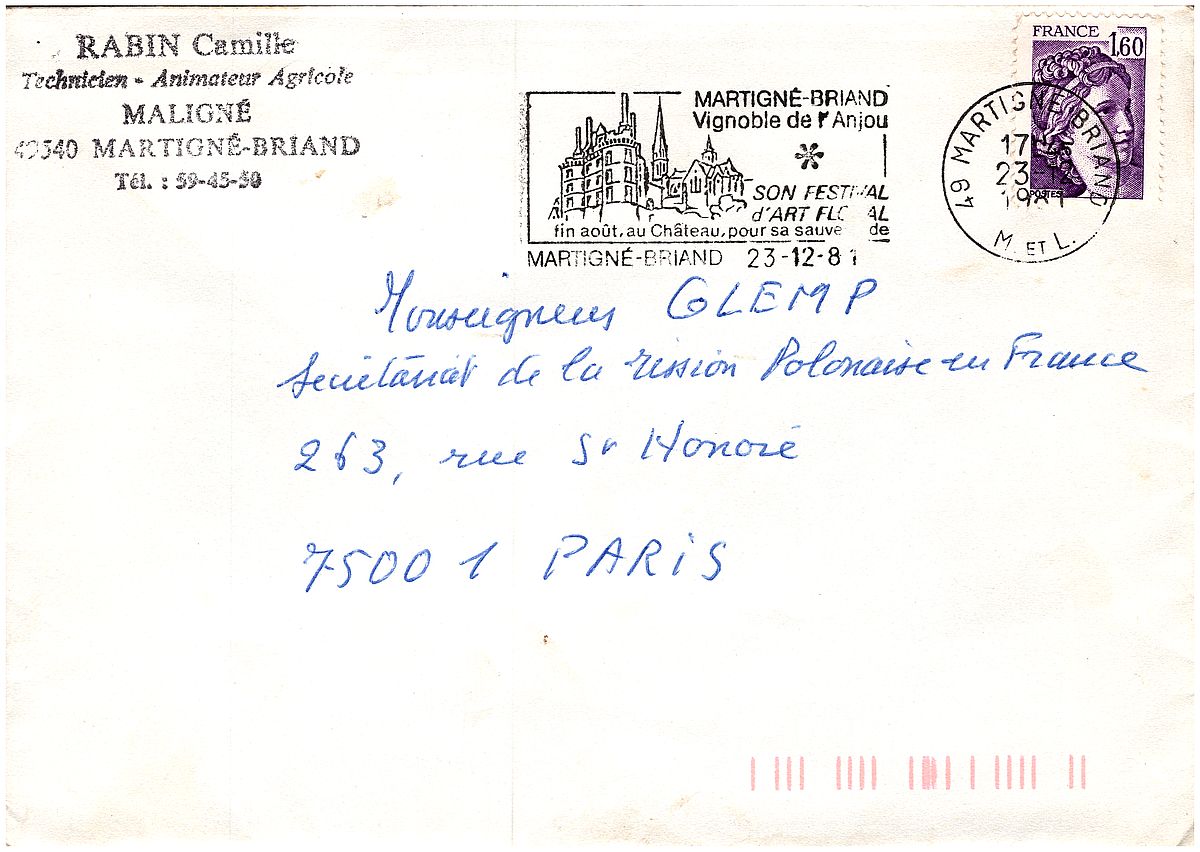 RABIN Camille
Technicien - Animateur Agricole
MALIGNÉ
49540 MARTIGNÉ-BRIAND
Tél. : 59-45-50
MARTIGNÉ-BRIAND
Vignoble de l'Anjou
SON FESTIVAL
d'ART FLORAL
fin août, au Château, pour sa sauve de
MARTIGNÉ-BRIAND 23-12-81
FRANCE 1,60
POSTES
49 MARTIGNÉ-BRIAND
17H
23-12
1981
M. ET L.
Monseigneur GLEMP
Secrétariat de la Mission Polonaise en France
263, rue St Honoré
75001 PARIS